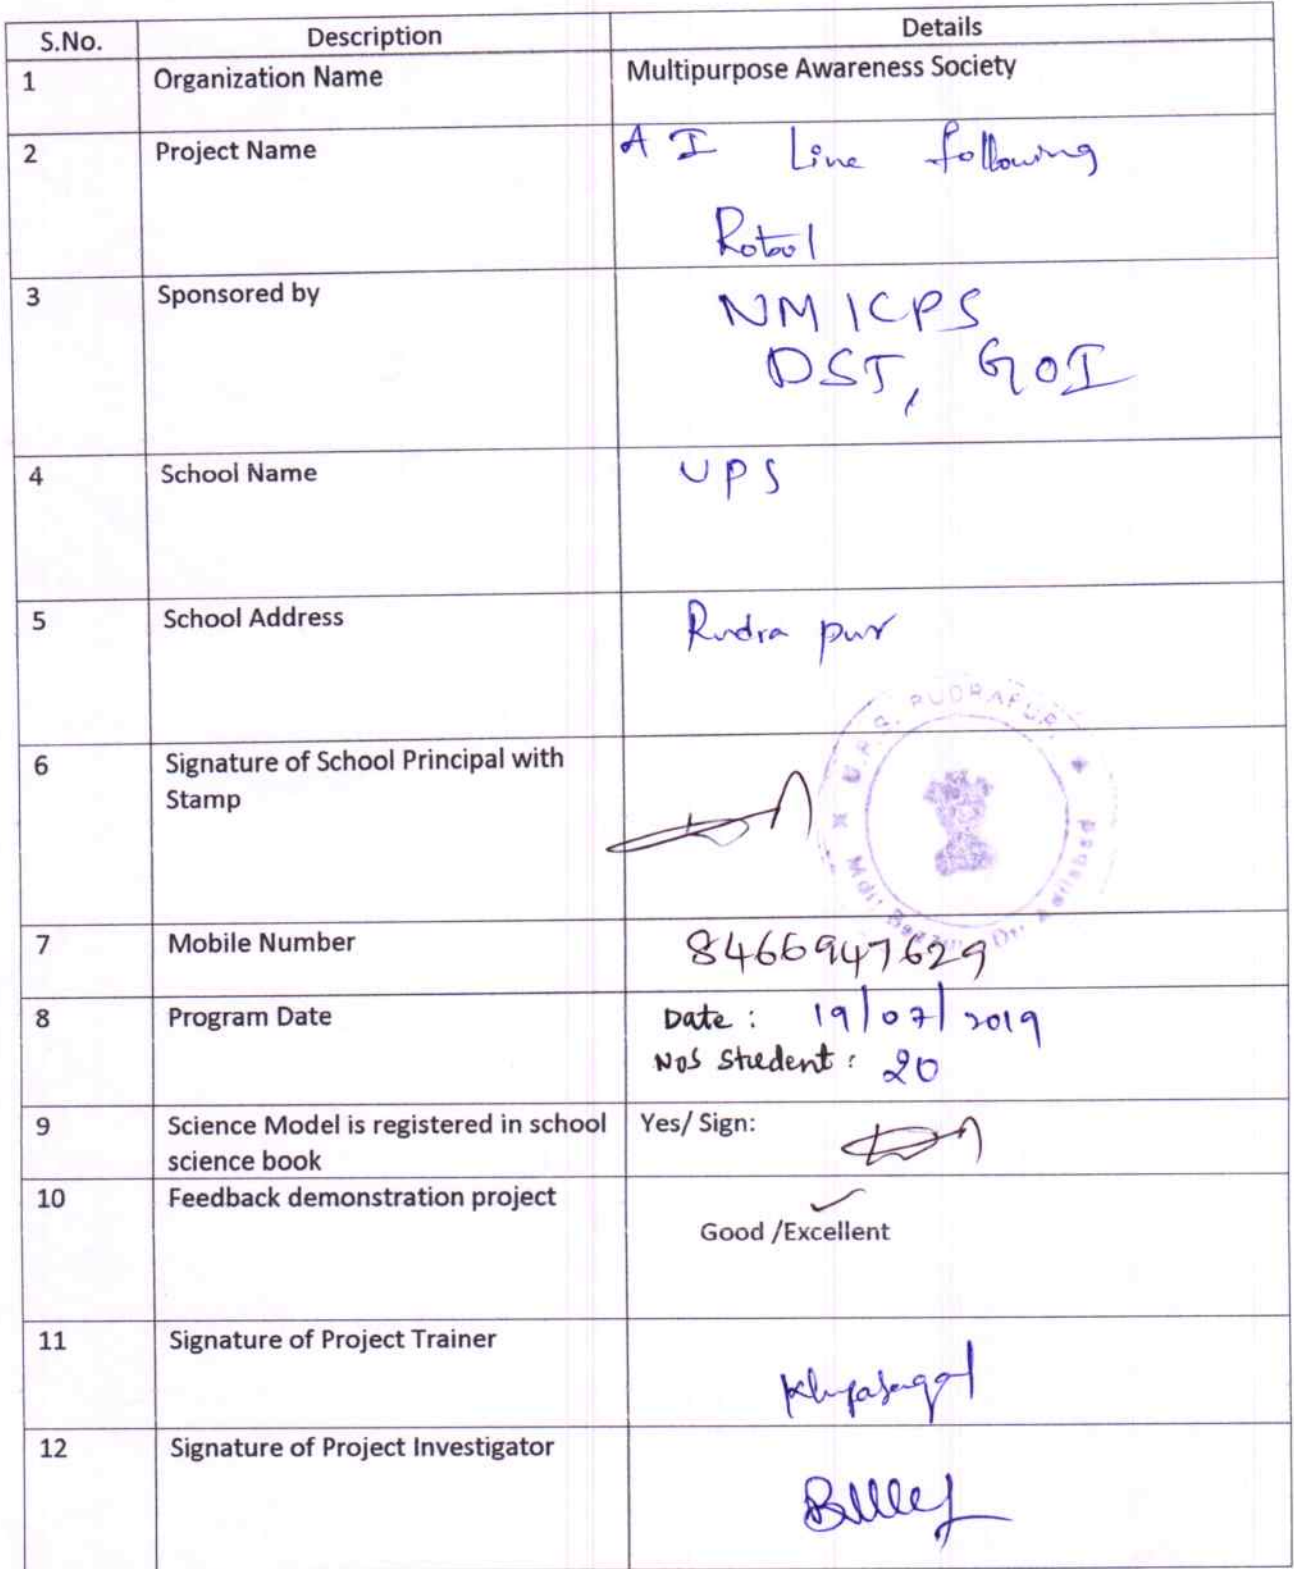 S.No. Description Details
1 Organization Name Multipurpose Awareness Society
2 Project Name A I Line following
Rotool
3 Sponsored by NM ICPS
DST, GOI
4 School Name UPS
5 School Address Rudra pur
U.P.S. RUDRAPUR
6 Signature of School Principal with
Stamp
Mdl.
7 Mobile Number 8466947629
8 Program Date Date : 19/07/2019
NoS Student : 20
9 Science Model is registered in school Yes/ Sign:
science book
10 Feedback demonstration project
Good /Excellent
11 Signature of Project Trainer
12 Signature of Project Investigator